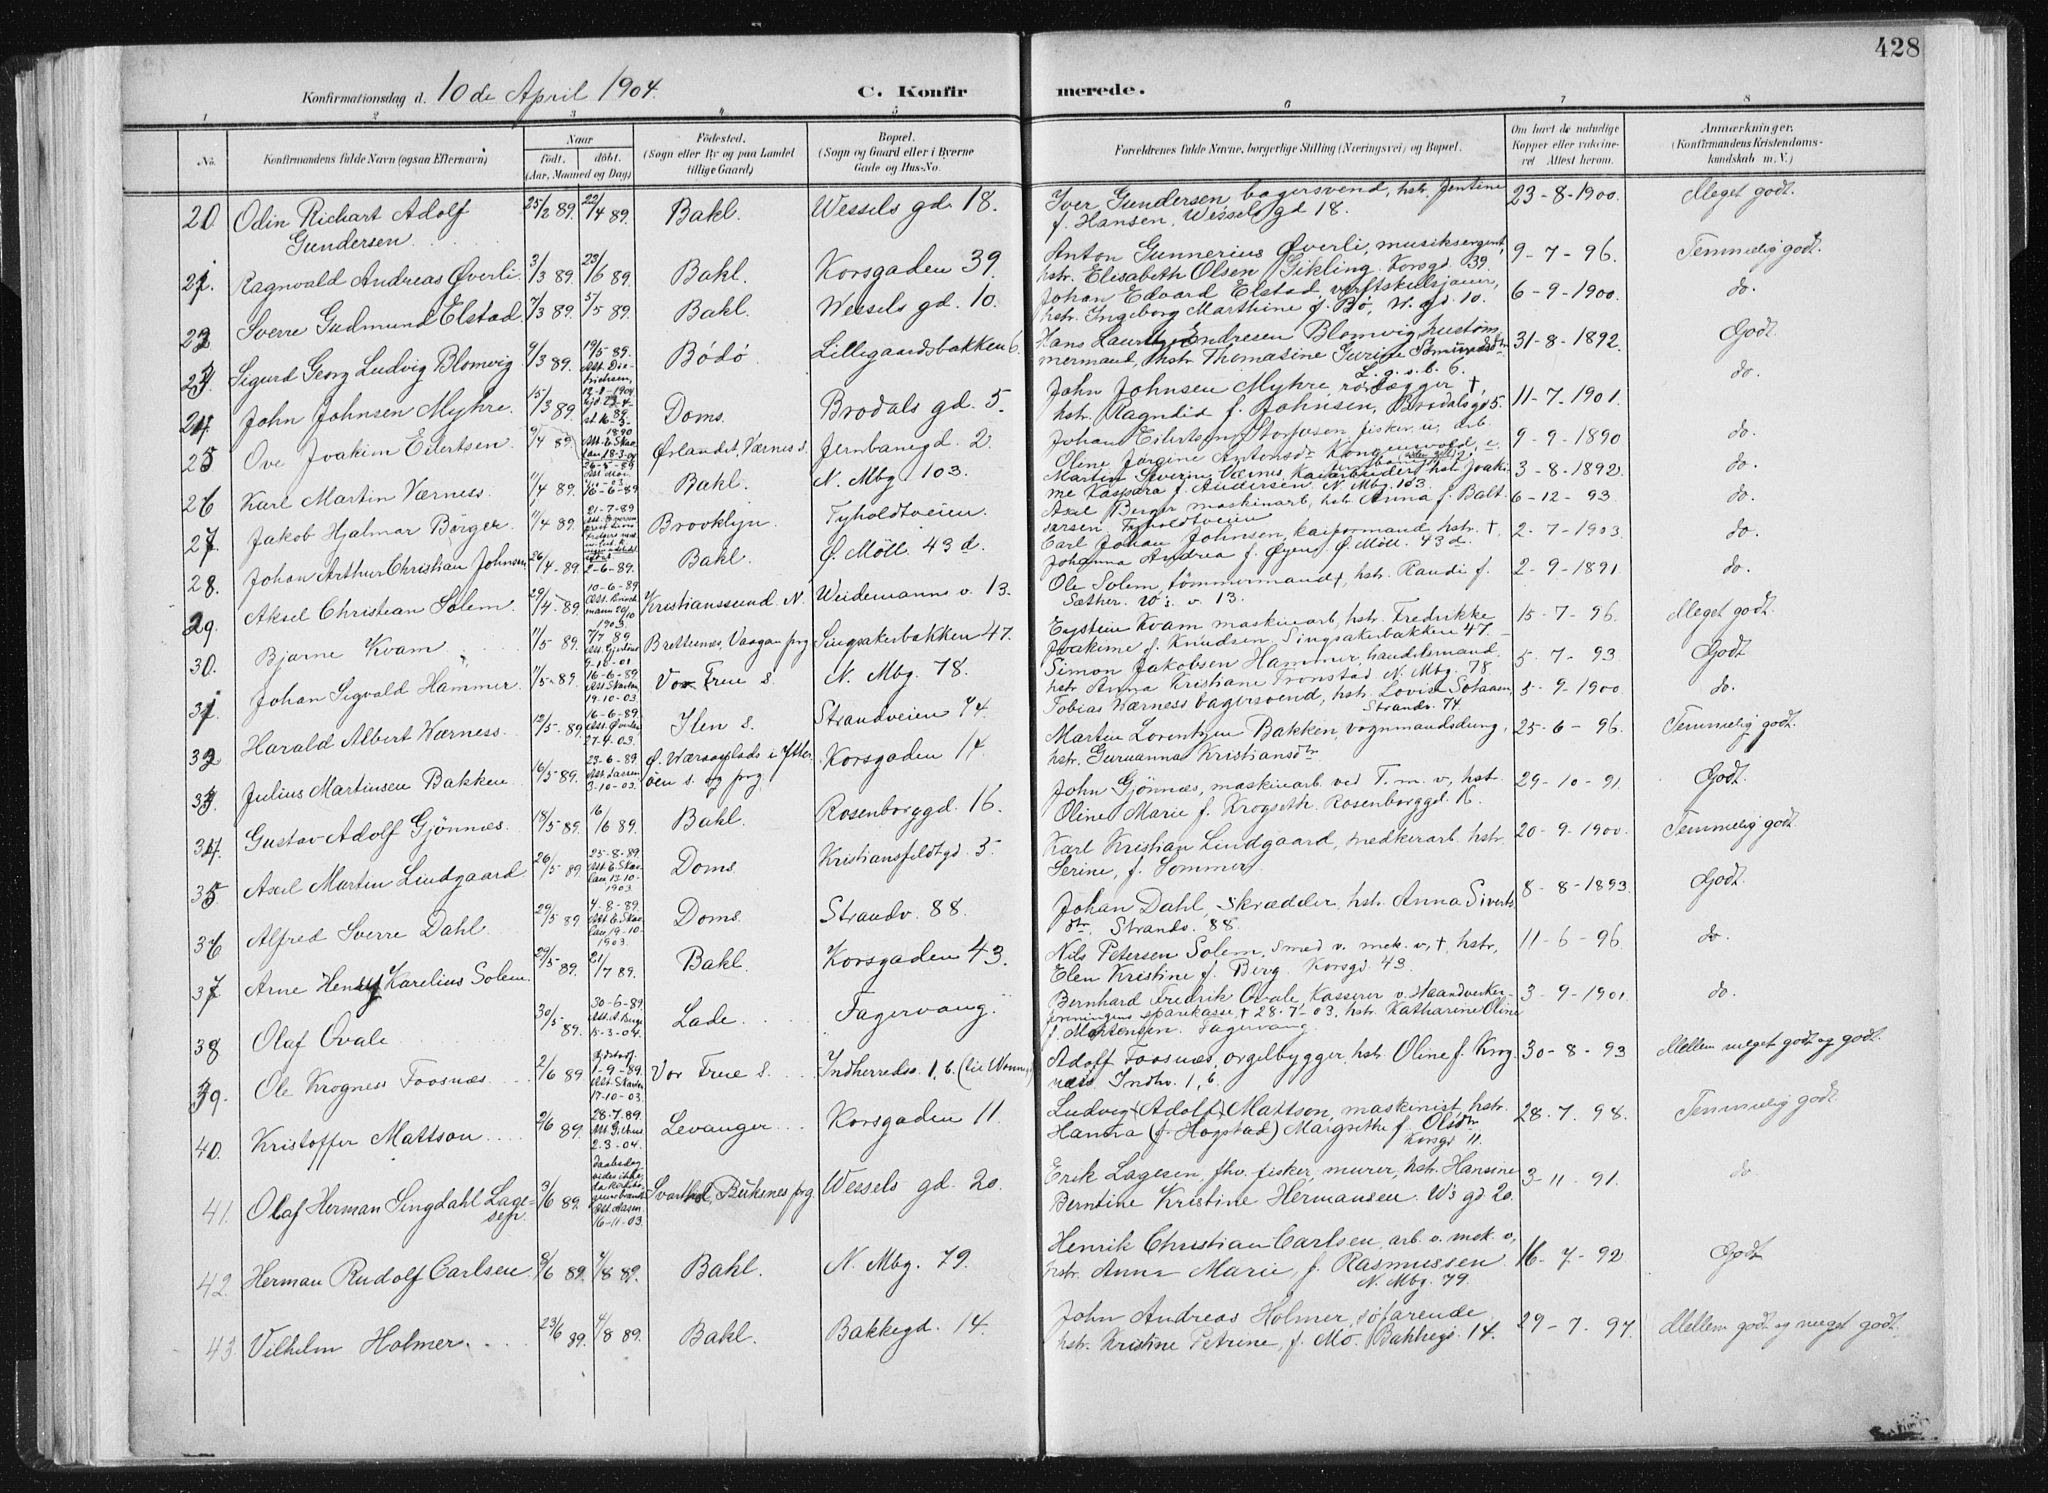 428
Konfirmationsdag d. 10 de April 1904.
C. Konfirmerede.
1 2 3 4 5 6 7 8
No.
Konfirmandens fulde Navn (ogsaa Efternavn)
Naar
født. døbt.
(Aar, Maaned og Dag)
Fødested.
(Sogn eller By og paa Landet
tillige Gaard)
Bopæl.
(Sogn og Gaard eller i Byerne
Gade og Hus-No.
Forældrenes fulde Navne, borgerlige Stilling (Næringsvei) og Bopæl.
Om havt de naturlige
Kopper eller vaccine-
ret Attest herom.
Anmærkninger.
(Konfirmandens Kristendoms-
kundskab m. V.)
20 Odin Richart Adolf 25/2 89. 22/4 89. Bakl. Wessels gd. 18. Iver Gundersen, bagersvend, hstr. Jentine 23-8-1900. Meget godt.
Gundersen f. Hansen, Wessels gd 18.
21. Ragnvald Andreas Øverli. 3/3 89. 23/6 89. Bakl. Korsgaden 39. Anton Gunnerius Øverli, musiksergent, 9-7-96. Temmelig godt.
hstr. Elisabeth Olsen Gikling. Korsgd. 39.
22 Sverre Gudmund Elstad. 7/3 89. 5/5 89. Bakl. Wessels gd. 10. Johan Edvard Elstad 6-9-1900. do.
hstr. Ingeborg Marthine f. Bø, W. gd. 10.
23 Sigurd Georg Ludvig Blomvig 9/3 89. 19/5-89. Bódó Lillegaardsbakken 6. Hans Laurits Endresen Blomvig, hustøm- 31-8-1892. Godt.
mermand, hstr. Thomasine
L. g. s. b. 6.
24. John Johnsen Myhre. 15/3 89. Doms. Brodals gd. 5. John Johnsen Myhre rørlægger †, 11-7-1901. do.
hstr. Ragnhild f. Johnsen, Brodalsgd 5.
25 Ove Joakim Eilertsen 9/4 89. Ørlandet, Værnes s. Jernbanegd. 2. Johan Eilertsen Storfosen fisker, u. arb. 9-9-1890 do.
Oline Jørgine Antonsdr.
26 Karl Martin Værness. 11/4 89. 16-6-89 Bakl. N. Mbg. 103. Martin Severin Værnes, Kaiarbeider, hstr. Joaki- 3-8-1892. do.
me Kaspara f. Andersen. N. Mbg. 103.
27. Jakob Hjalmar Børger. 11/4 89. 21-7-89 Brooklyn. Tyholdtveien. Axel Berger maskinarb, hstr. Anna f. Balt- 6-12-93. do.
sarsen, Tyholdtveien
28. Johan Arthur Christian Johnsen 26/4-89. 2-6-89. Bakl. Ø. Möll. 43 d. Carl Johan Johnsen, kaiformand, hstr. †, 2-7-1903. do.
Johanna Andrea f. Øyen, Ø. Möll. 43 d.
29. Aksel Christian Solem. 29/4-89. 10-6-89. Kristianssund N. Weidemanns v. 13. Ole Solem, tømmermand †, hstr. Randi f. 2-9-1891. do.
Sæther. W's. v. 13.
30. Bjarne Kvam 11/5 89. 7/7 89. Brettesnes, Vaagan prg. Singsakerbakken 47. Eystein Kvam maskinarb, hstr. Fredrikke 15-7-96. Meget godt.
Joakime f. Knudsen, Singsakerbakken 47.
31 Johan Sigvald Hammer. 11/5-89. 16-6-89. Vor Frue s. N. Mbg. 78. Simon Jakobsen Hammer, handelsmand. 5-7-93. Godt
19-10-03 hstr. Anna Kristiane Tronstad N. Mbg. 78
32 Harald Albert Værness. 12/5-89. 16-6-89. Ilen s. Strandveien 74. Tobias Værness bagersvend, hstr. Lovise 5-9-1900. do.
27-4-03. Strandv. 74
33 Julius Martinsen Bakken 16/5 89. 23-6-89. Ø. Værsaaplads i Ytter- Korsgaden 14. Martin Lorentsen Bakken, vognmandsdreng, 25-6-96. Temmelig godt.
3-10-03. øen s. og prg. hstr. Gurianna Kristiansdtr
34. Gustav Adolf Gjönnæs. 18/5 89. 16/6 89. Bakl. Rosenborggd. 16. John Gjönnæs, maskinarb. ved T. m. v., hst. 29-10-91 Godt.
Oline Marie f. Krogseth. Rosenborggd. 16.
35 Axel Martin Lindgaard 26/5 89. 25-8-89. Doms. Kristiansfeldtgd. 5. Karl Kristian Lindgaard, hstr. 20-9-1900. Temmelig godt.
1903 Serine, f. Sommer.
36 Alfred Sverre Dahl. 29/5 89. 4-8-89. Doms. Strandv. 88. Johan Dahl, skrædder, hstr. Anna Siverts- 8-8-1893. Godt.
1903. dtr. Strandv. 88.
37 Arne Henry Karelius Solem. 29/5 89. 21/7 89. Bakl. Korsgaden 43. Nils Petersen Solem, smed v. mek. v, †, hstr, 11-6-96. do.
Elen Kristine f. Berg. Korsgd. 43.
38 Olaf Ovale 30/5 89. 30-6-89. Lade. Fagervang. Bernhard Fredrik Ovale, Kasserer v. Haandverker- 3-9-1901. do.
15-3-04. foreningens sparekasse, † 28-7-03. hstr. Katharine Oline
f. Mortensen. Fagervang.
39. Ole Krogness Foosnæs. 2/6 89. 1-9-89. Vor Frue s. Indherredsv. 1, b. Adolf Foosnæs, orgelbygger, hstr. Oline f. Krog- 30-8-93 Mellem meget godt og godt.
17-10-03. næss. Indhv. 1, b.
40. Kristoffer Mattson 2/6 89. 28-7-89. Levanger. Korsgaden 11. Ludvig (Adolf) Mattson, maskinist, hstr. 28-7-98. Temmelig godt.
2-3-04. Hanna (f. Hogstad) Margrethe f. Olsdtr
Korsgd 11.
41. Olaf Herman Singdahl Lage- 3/6 89. Buksnes prg. Wessels gd. 20. Erik Lagesen, fhv. fisker, murer, hstr. Hansine 3-11-91. do
sen. 16-11-03. Berntine Kristine Hermansen. W's gd 20.
42. Herman Rudolf Carlsen 8/6 89. 4/8 89. Bakl. N. Mbg. 79. Henrik Christian Carlsen, arb. v. mek. v, 16-7-92 Godt
hstr. Anna Marie, f. Rasmussen
N. Mbg. 79.
43. Vilhelm Holmer. 23/6 89. 4/8 89. Bakl. Bakkegd. 14. John Andreas Holmer, søfarende 29-7-97. Mellem godt og meget godt.
hstr. Kristine Petrine, f. Mo. Bakkegd. 14.